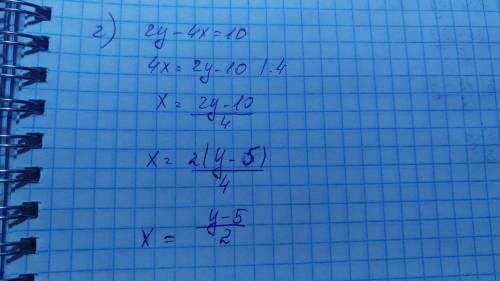 г) 2y - 4x = 10
4x = 2y - 10 | : 4
x = (2y - 10)/4
x = 2(y - 5)/4
x = (y - 5)/2